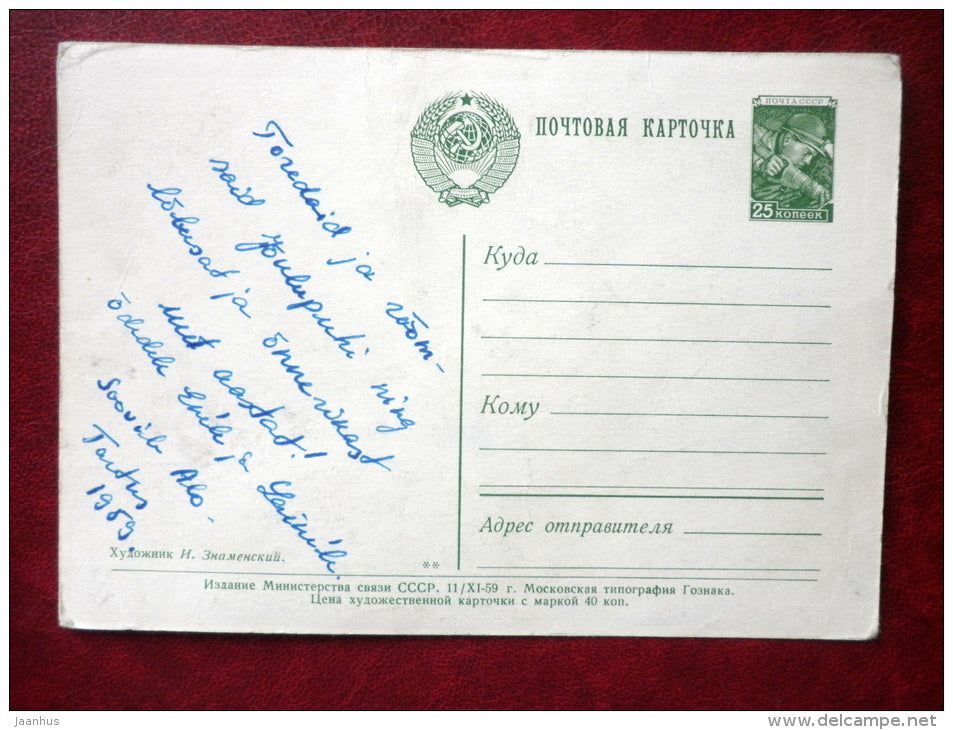 Toredaid ja rõõm-
said jõulupühi ning
lõbusat ja õnnerikast
uut aastat!
õdedele Enele ja Laimile.
Soovib Alo -
Tartus
1959.
ПОЧТОВАЯ КАРТОЧКА
ПОЧТА СССР
25 КОПЕЕК
Куда
Кому
Адрес отправителя
Художник И. Знаменский.
**
Издание Министерства связи СССР. 11/XI-59 г. Московская типография Гознака.
Цена художественной карточки с маркой 40 коп.
Jaanhus
www.delcampe.net